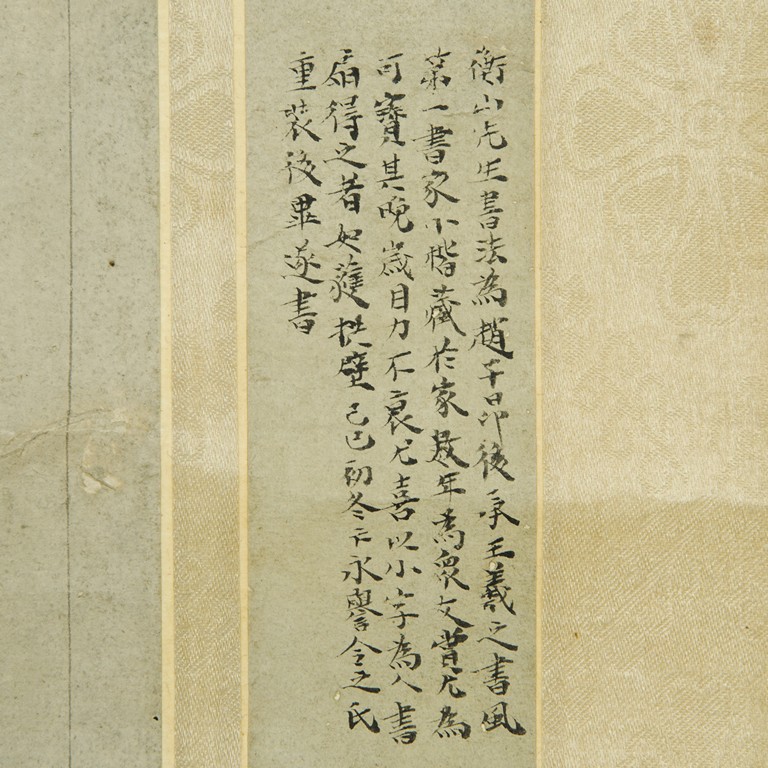 衡山先生書法為趙子昂後承王羲之書風
第一書家小楷藏於家數年為眾文賞尤為
可寶其晚歲目力不衰尤喜以小字為人書
扇得之者如獲拱璧己巳初冬卞永譽令之氏
重裝後畢遂書